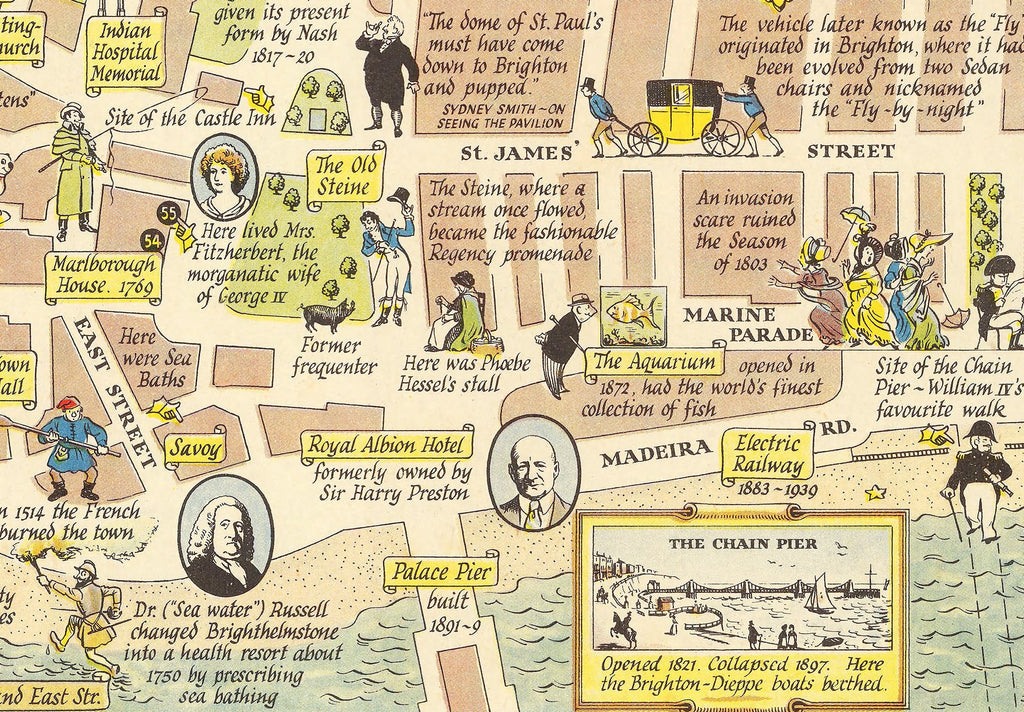 given its present
form by Nash
1817~20
Indian
Hospital
Memorial
"The dome of St. Paul's
must have come
down to Brighton
and pupped."
SYDNEY SMITH~ON
SEEING THE PAVILION
The vehicle later known as the "Fly
originated in Brighton, where it had
been evolved from two Sedan
chairs and nicknamed
the "Fly~by~night"
Site of the Castle Inn
St. JAMES' STREET
The Old
Steine
55
54
Marlborough
House. 1769
Here lived Mrs.
Fitzherbert, the
morganatic wife
of George IV
The Steine, where a
stream once flowed,
became the fashionable
Regency promenade
An invasion
scare ruined
the Season
of 1803
Former
frequenter
Here was Phoebe
Hessel's stall
MARINE
PARADE
The Aquarium opened in
1872, had the world's finest
collection of fish
Site of the Chain
Pier ~ William IV's
favourite walk
EAST STREET
Here
were Sea
Baths
Savoy
Royal Albion Hotel
formerly owned by
Sir Harry Preston
MADEIRA RD.
Electric
Railway
1883~1939
1514 the French
burned the town
Palace Pier
built
1891~9
THE CHAIN PIER
Opened 1821. Collapscd 1897. Here
the Brighton-Dieppe boats berthed.
Dr. ("Sea water") Russell
changed Brighthelmstone
into a health resort about
1750 by prescribing
sea bathing
East Str.